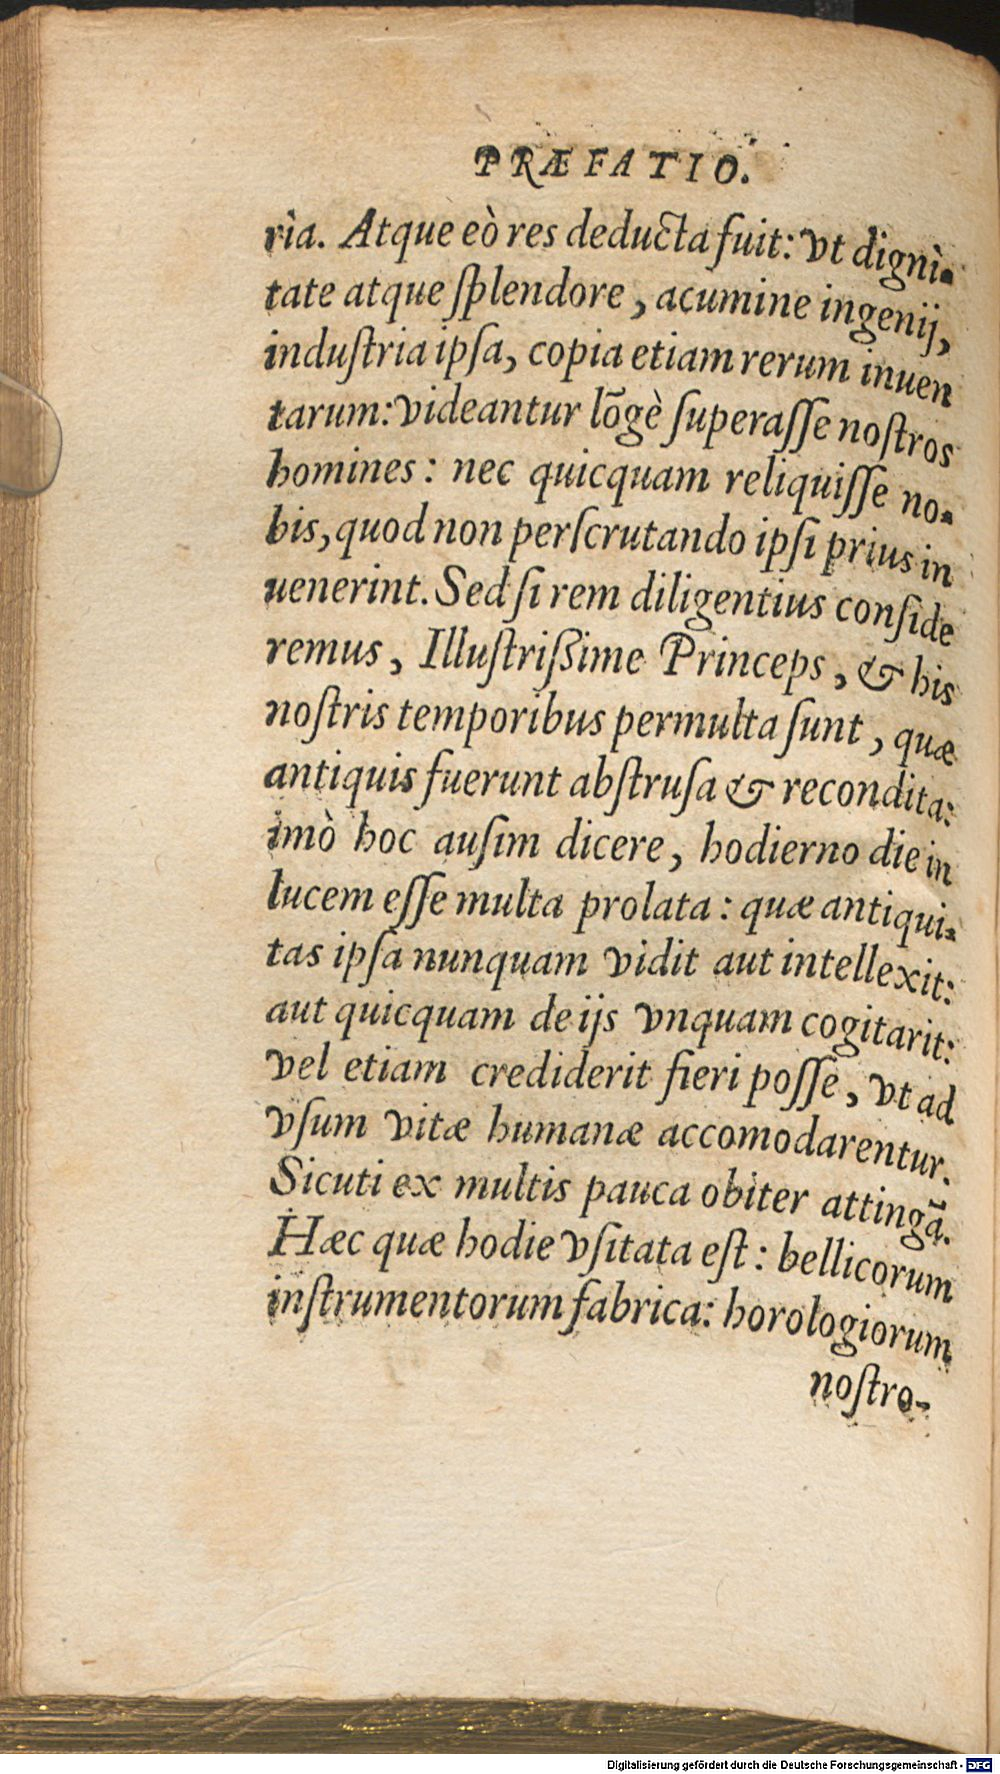 PRÆFATIO.
ria. Atque eò res deducta fuit: vt digni-
tate atque splendore, acumine ingenij,
industria ipsa, copia etiam rerum inuen
tarum: videantur lōgè superasse nostros
homines: nec quicquam reliquisse no-
bis, quod non perscrutando ipsi prius in
uenerint. Sed si rem diligentius conside
remus, Illustrißime Princeps, & his
nostris temporibus permulta sunt, quæ
antiquis fuerunt abstrusa & recondita:
imò hoc ausim dicere, hodierno die in
lucem esse multa prolata: quæ antiqui-
tas ipsa nunquam vidit aut intellexit:
aut quicquam de ijs vnquam cogitarit:
vel etiam crediderit fieri posse, vt ad
vsum vitæ humanæ accomodarentur.
Sicuti ex multis pauca obiter attingā.
Hæc quæ hodie vsitata est: bellicorum
instrumentorum fabrica: horologiorum
nostro-
Digitalisierung gefördert durch die Deutsche Forschungsgemeinschaft - DFG